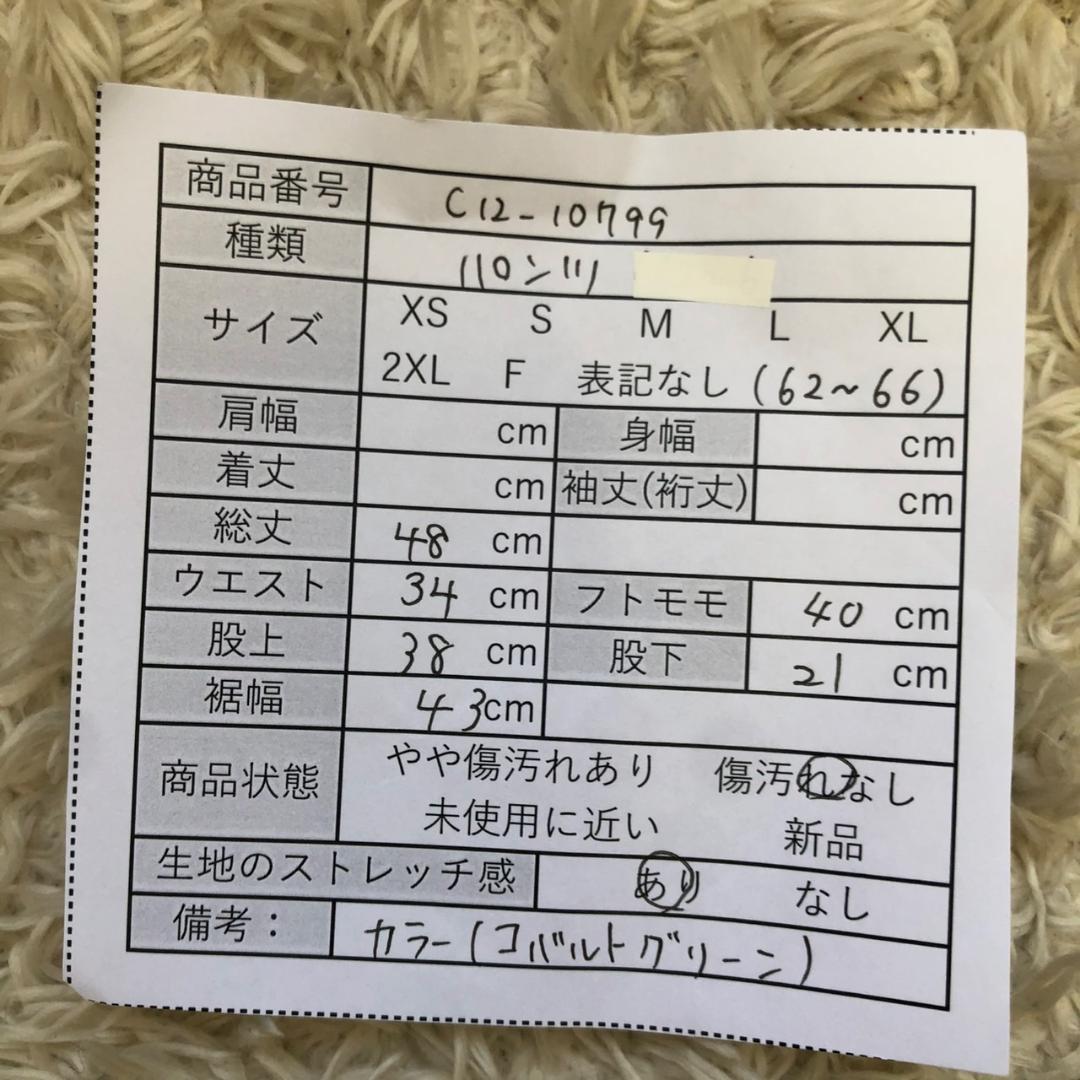 商品番号 C12-10799
種類 パンツ
サイズ XS S M L XL
2XL F 表記なし (62~66)
肩幅 cm 身幅 cm
着丈 cm 袖丈(裄丈) cm
総丈 48 cm
ウエスト 34 cm フトモモ 40 cm
股上 38 cm 股下 21 cm
裾幅 43cm
商品状態 やや傷汚れあり 傷汚れなし
未使用に近い 新品
生地のストレッチ感 あり なし
備考： カラー(コバルトグリーン)